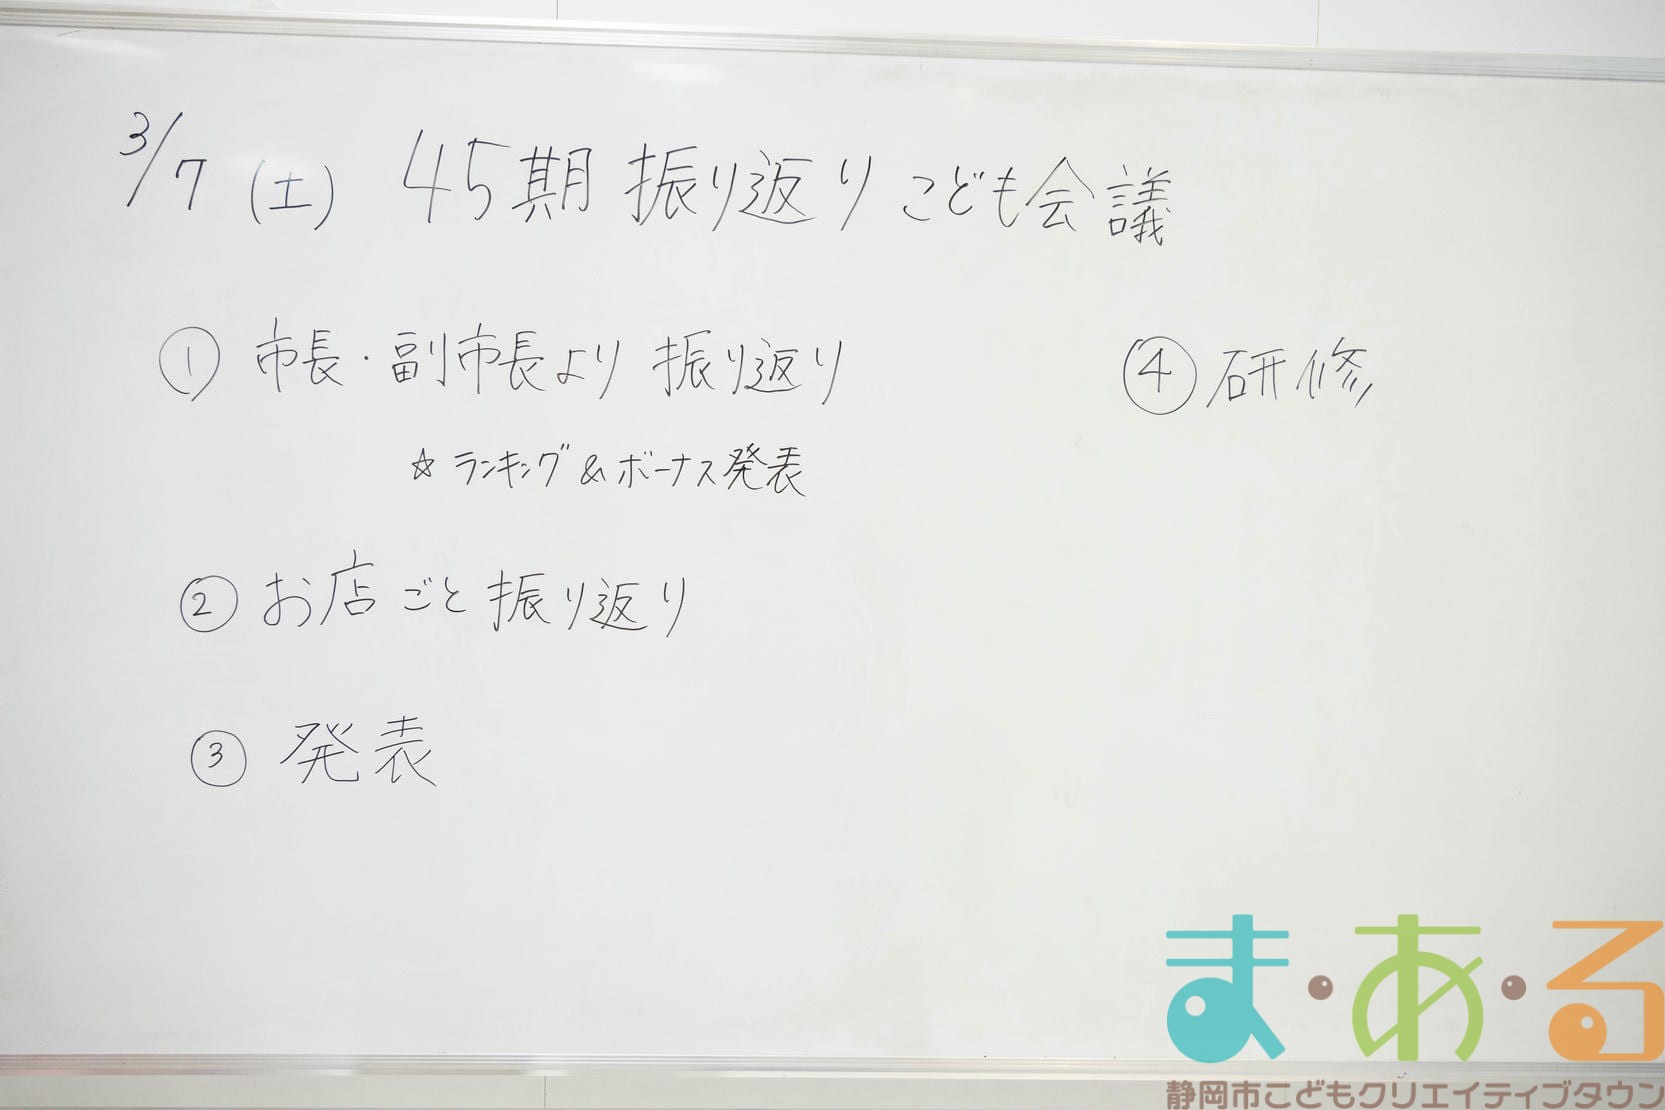 3/7 (土) 45期 振り返り こども会議
① 市長・副市長より 振り返り
☆ ランキング&ボーナス発表
② お店ごと振り返り
③ 発表
④ 研修
ま・あ・る
静岡市こどもクリエイティブタウン